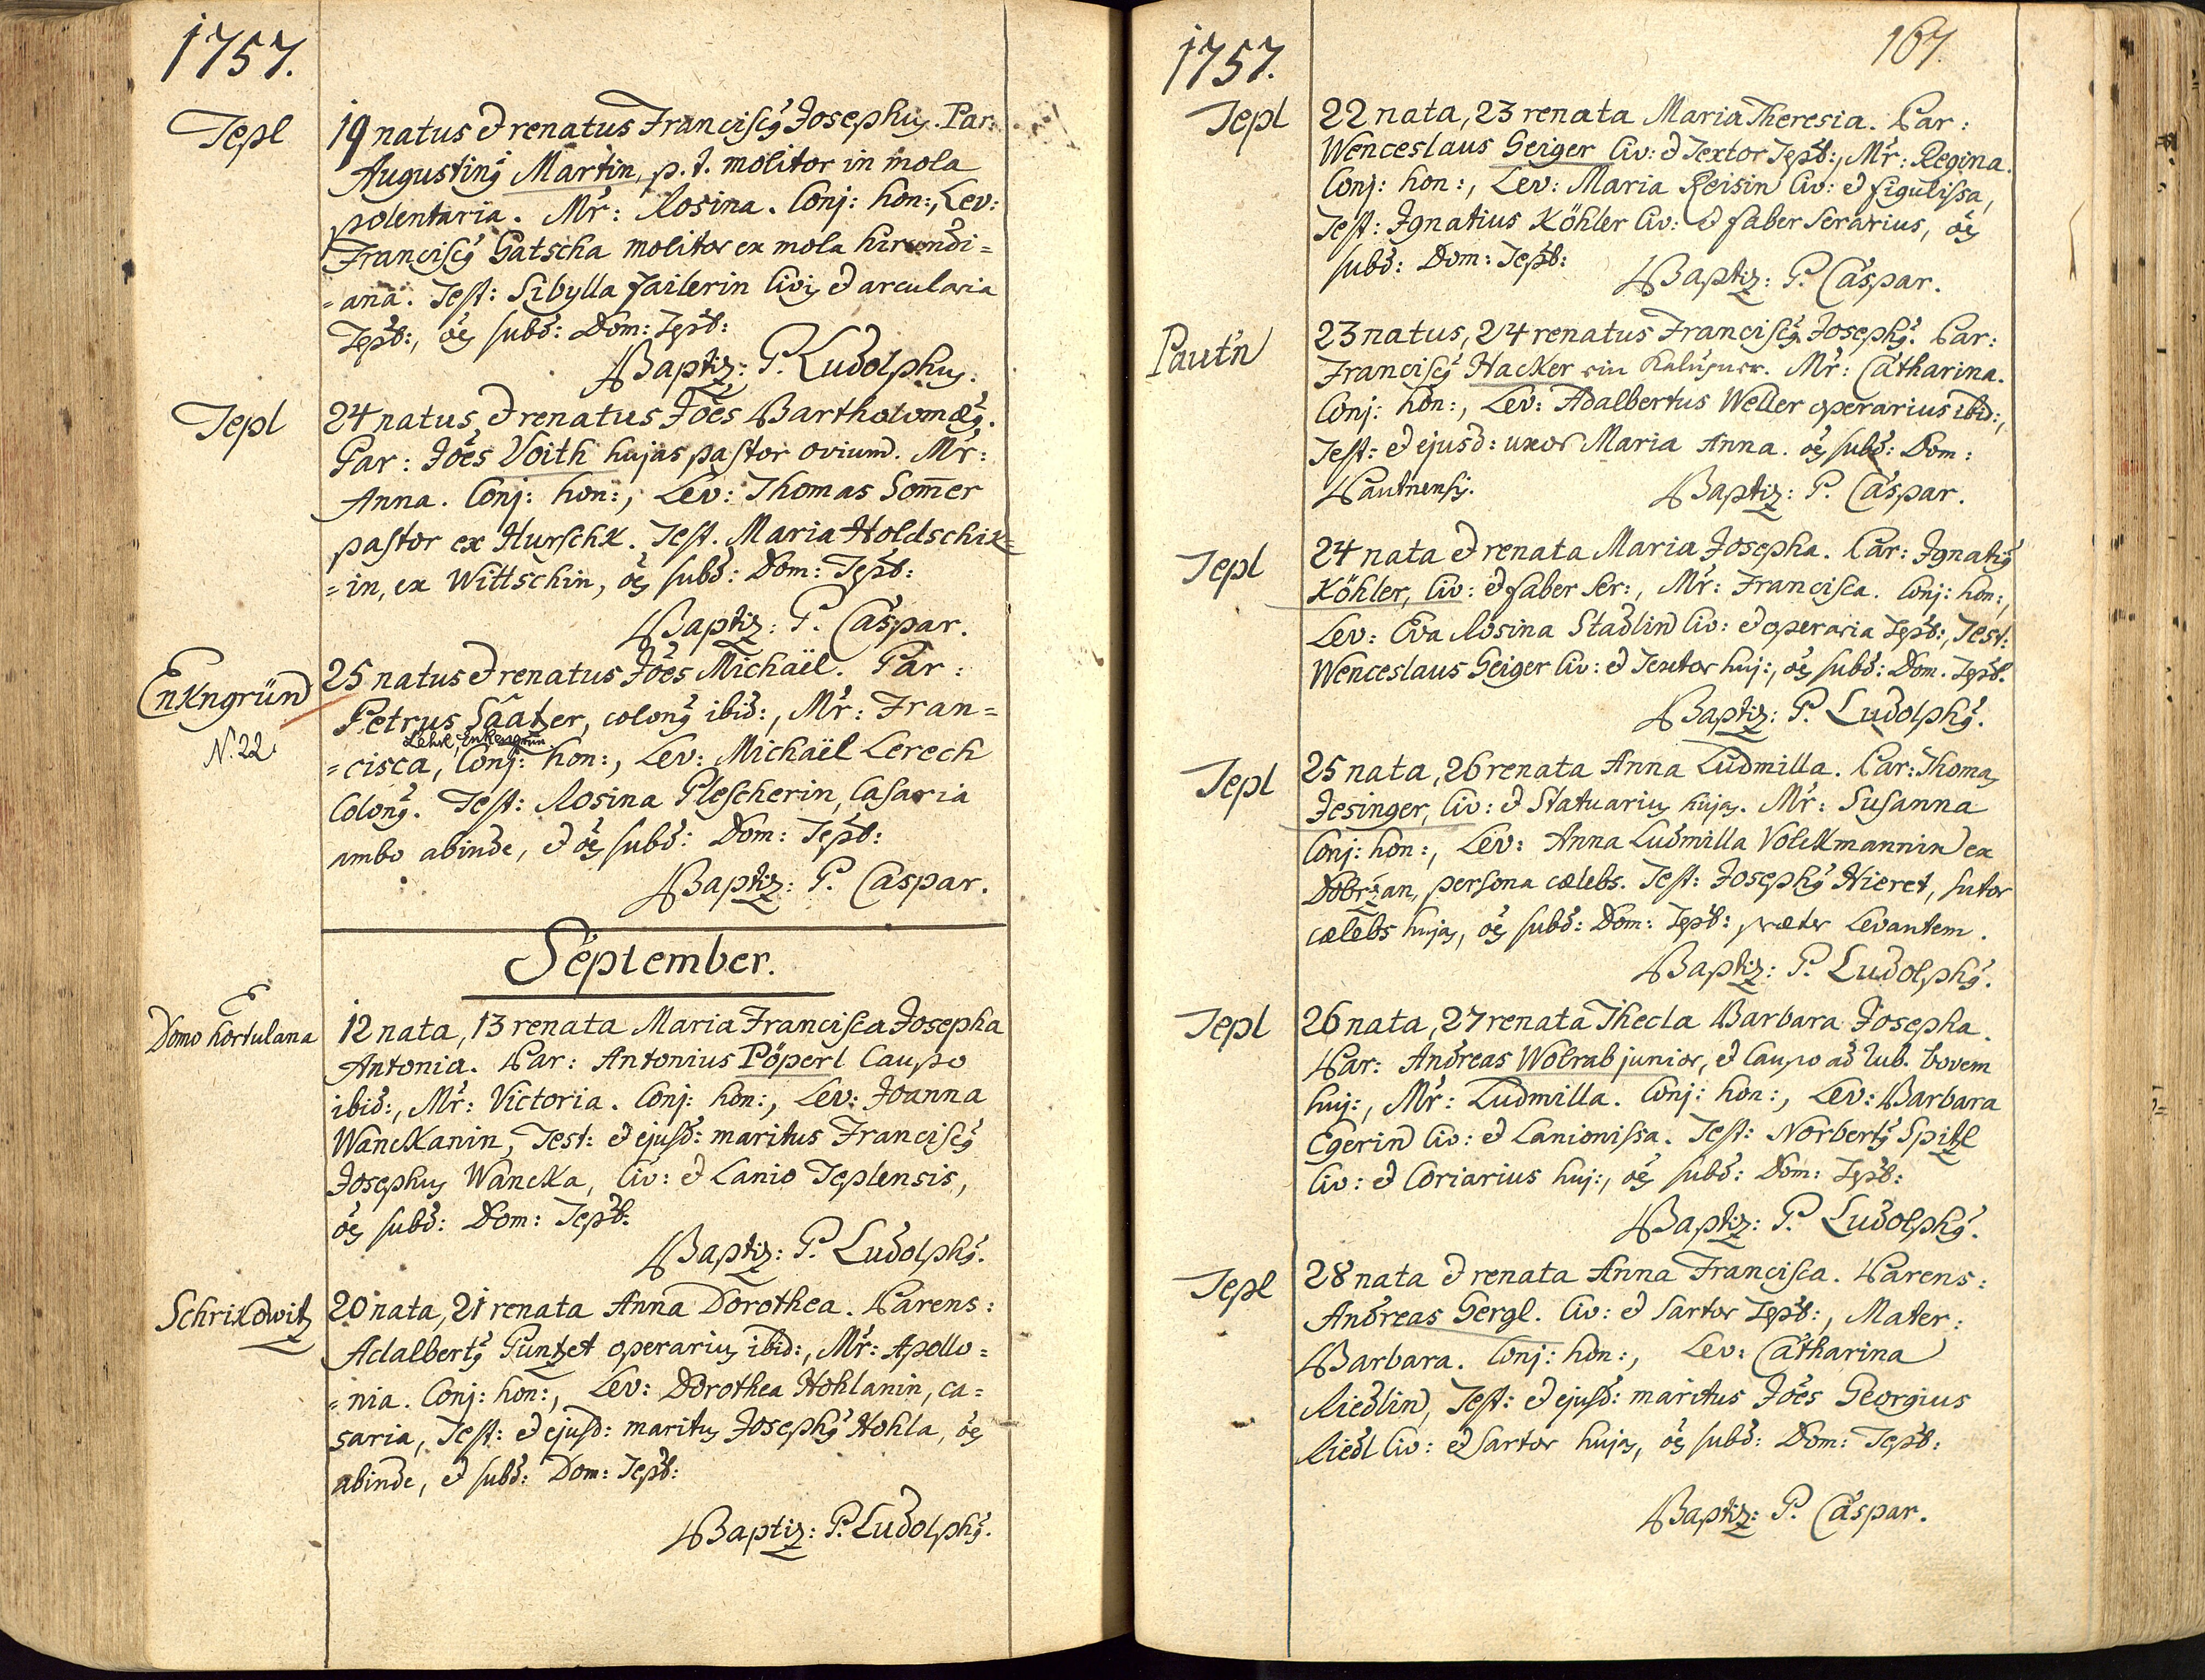 1757.
Tepl
19 natus & renatus Franciscus Josephus. Par:
Augustinus Martin, p.t. molitor in mola
polentaria. Mr̃: Rosina. Conj: hon:, Lev:
Franciscus Gatscha molitor ex mola hirundi=
=ana. Test: Sibylla Failerin Civis & arcularia
Tepl:, oẽs subd: Dom: Tepl:
Baptiz: P. Ludolphus.
Tepl
24 natus & renatus Joẽs Bartholomæus.
Par: Joẽs Voith hujas pastor ovium. Mr̃:
Anna. Conj: hon:, Lev: Thomas Som̃er
pastor ex Hurschk. Test. Maria Holdschik=
=in, ex Wittschin, oẽs subd: Dom: Tepl:
Baptiz: P. Caspar.
Enkngrün
N. 22
25 natus & renatus Joẽs Michaël. Par:
Petrus Säatzer, colonus ibid:, Mr̃: Fran=
Lehrl, Enkengrün
=cisca, Conj: hon:, Lev: Michaël Lerech
Colonus. Test: Rosina Plescherin, Casaria
ambo abinde, & oẽs subd: Dom: Tepl:
Baptiz: P. Caspar.
September.
E
Domo hortulana
12 nata, 13 renata Maria Francisca Josepha
Antonia. Par: Antonius Pöperl Caupo
ibid:, Mr̃: Victoria. Conj: hon:, Lev: Joanna
Wanckanin, Test: & ejusd: maritus Franciscus
Josephus Wancka, Civ: & Lanio Teplensis,
oẽs subd: Dom: Tepl:
Baptiz: P. Ludolphus.
Schrikowitz
20 nata, 21 renata Anna Dorothea. Parens:
Adalbertus Puntzet operarius ibid:, Mr̃: Apollo=
=nia. Conj: hon:, Lev: Dorothea Hohlanin, ca=
saria, Test: & ejusd: maritus Josephus Hohla, oẽs
abinde, & subd: Dom: Tepl:
Baptiz: P. Ludolphus.
1757.
167.
Tepl
22 nata, 23 renata Maria Theresia. Par:
Wenceslaus Geiger Civ: & Textor Tepl:, Mr̃: Regina.
Conj: hon:, Lev: Maria Reisin Civ: & figulissa,
Test: Ignatius Köhler Civ: & faber serarius, oẽs
subd: Dom: Tepl:
Baptiz: P. Caspar.
Paut'n
23 natus, 24 renatus Franciscus Josephus. Par:
Franciscus Hacker ein Kalusner. Mr̃: Catharina.
Conj: hon:, Lev: Adalbertus Weller operarius ibid:,
Test: & ejusd: uxor Maria Anna. oẽs subd: Dom:
Pautnensis.
Baptiz: P. Caspar.
Tepl
24 nata & renata Maria Josepha. Par: Ignatius
Köhler, Civ: & faber ser:, Mr̃: Francisca. Conj: hon:,
Lev: Eva Rosina Stadlin Civ: & operaria Tepl:, Test:
Wenceslaus Geiger Civ: & Textor huj:, oẽs subd: Dom. Tepl:
Baptiz: P. Ludolphus.
Tepl
25 nata, 26 renata Anna Ludmilla. Par: Thomas
Jesinger, Civ: & Statuarius hujas. Mr̃: Susanna
Conj: hon:, Lev: Anna Ludmilla Volckmannin ex
Dobrzan, persona cælebs. Test: Josephus Hieret, sutor
cælebs hujas, oẽs subd: Dom: Tepl: præter Levantem.
Baptiz: P. Ludolphus.
Tepl
26 nata, 27 renata Thecla Barbara Josepha.
Par: Andreas Wobrab junior, & Caupo ad rub. bovem
huj:, Mr̃: Ludmilla. Conj: hon:, Lev: Barbara
Egerin Civ: & Lanionissa. Test: Norbertus Spitzl
Civ: & Coriarius huj:, oẽs subd: Dom: Tepl:
Baptiz: P. Ludolphus.
Tepl
28 nata & renata Anna Francisca. Parens:
Andreas Gergl. Civ: & Sartor Tepl:, Mater:
Barbara. Conj: hon:, Lev: Catharina
Riedlin, Test: & ejusd: maritus Joẽs Georgius
Riedl Civ: & Sartor hujas, oẽs subd: Dom: Tepl:
Baptiz: P. Caspar.